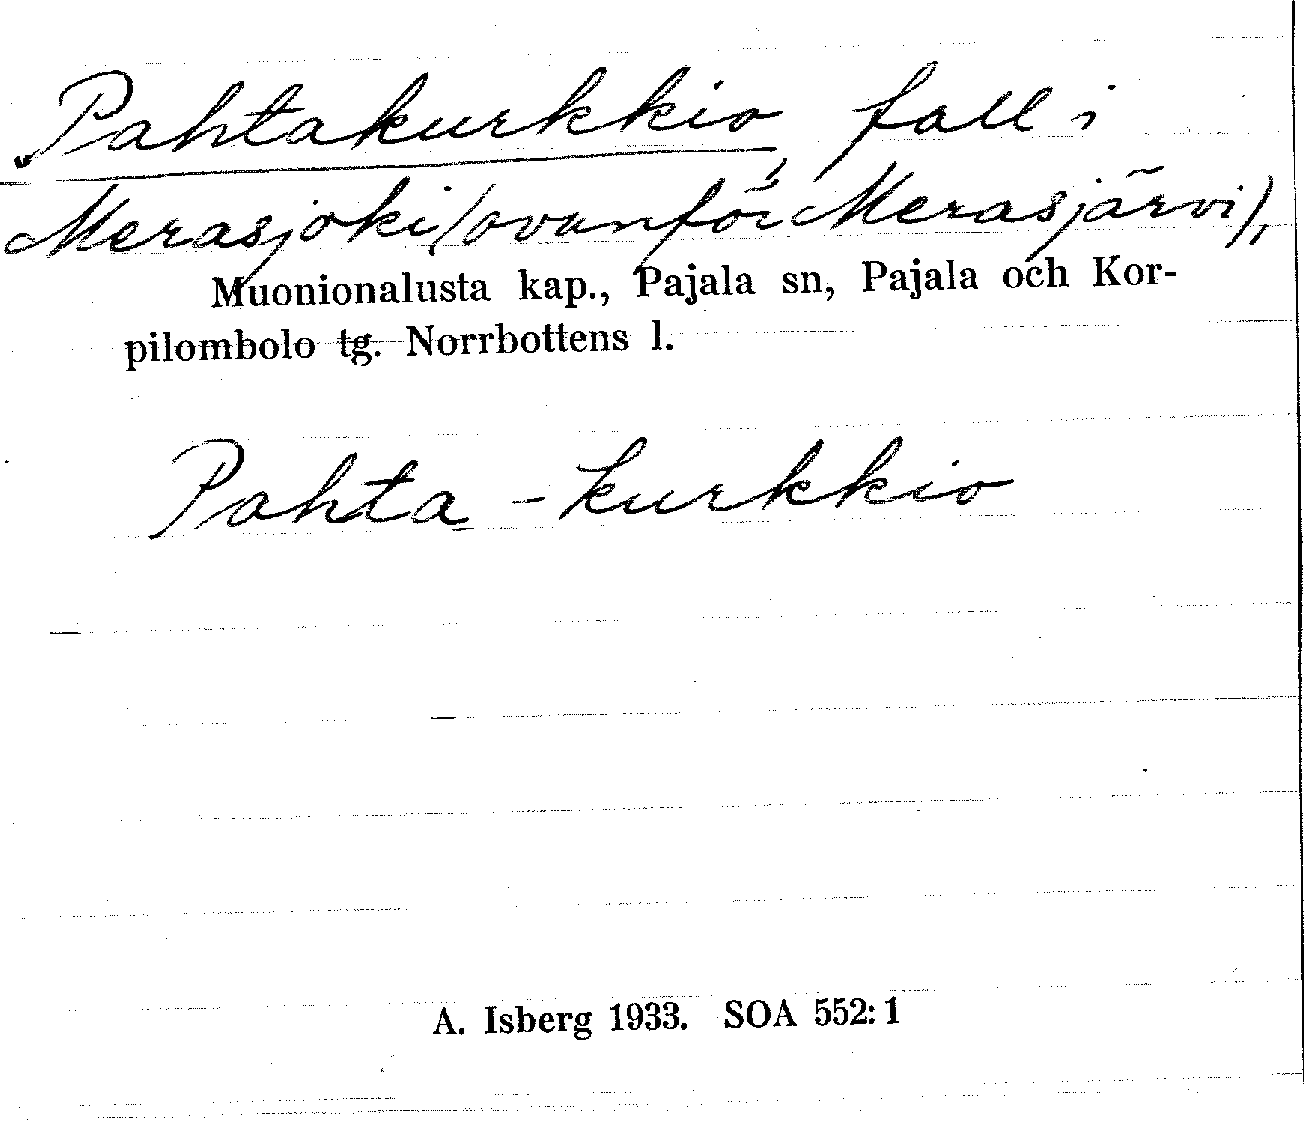 Pahtakurkkio, fall i
Merasjoki (ovanför Merasjärvi),
Muonionalusta kap., Pajala sn, Pajala och Kor-
pilombolo tg. Norrbottens l.
Pahta - kurkkio
A. Isberg 1933. SOA 552:1